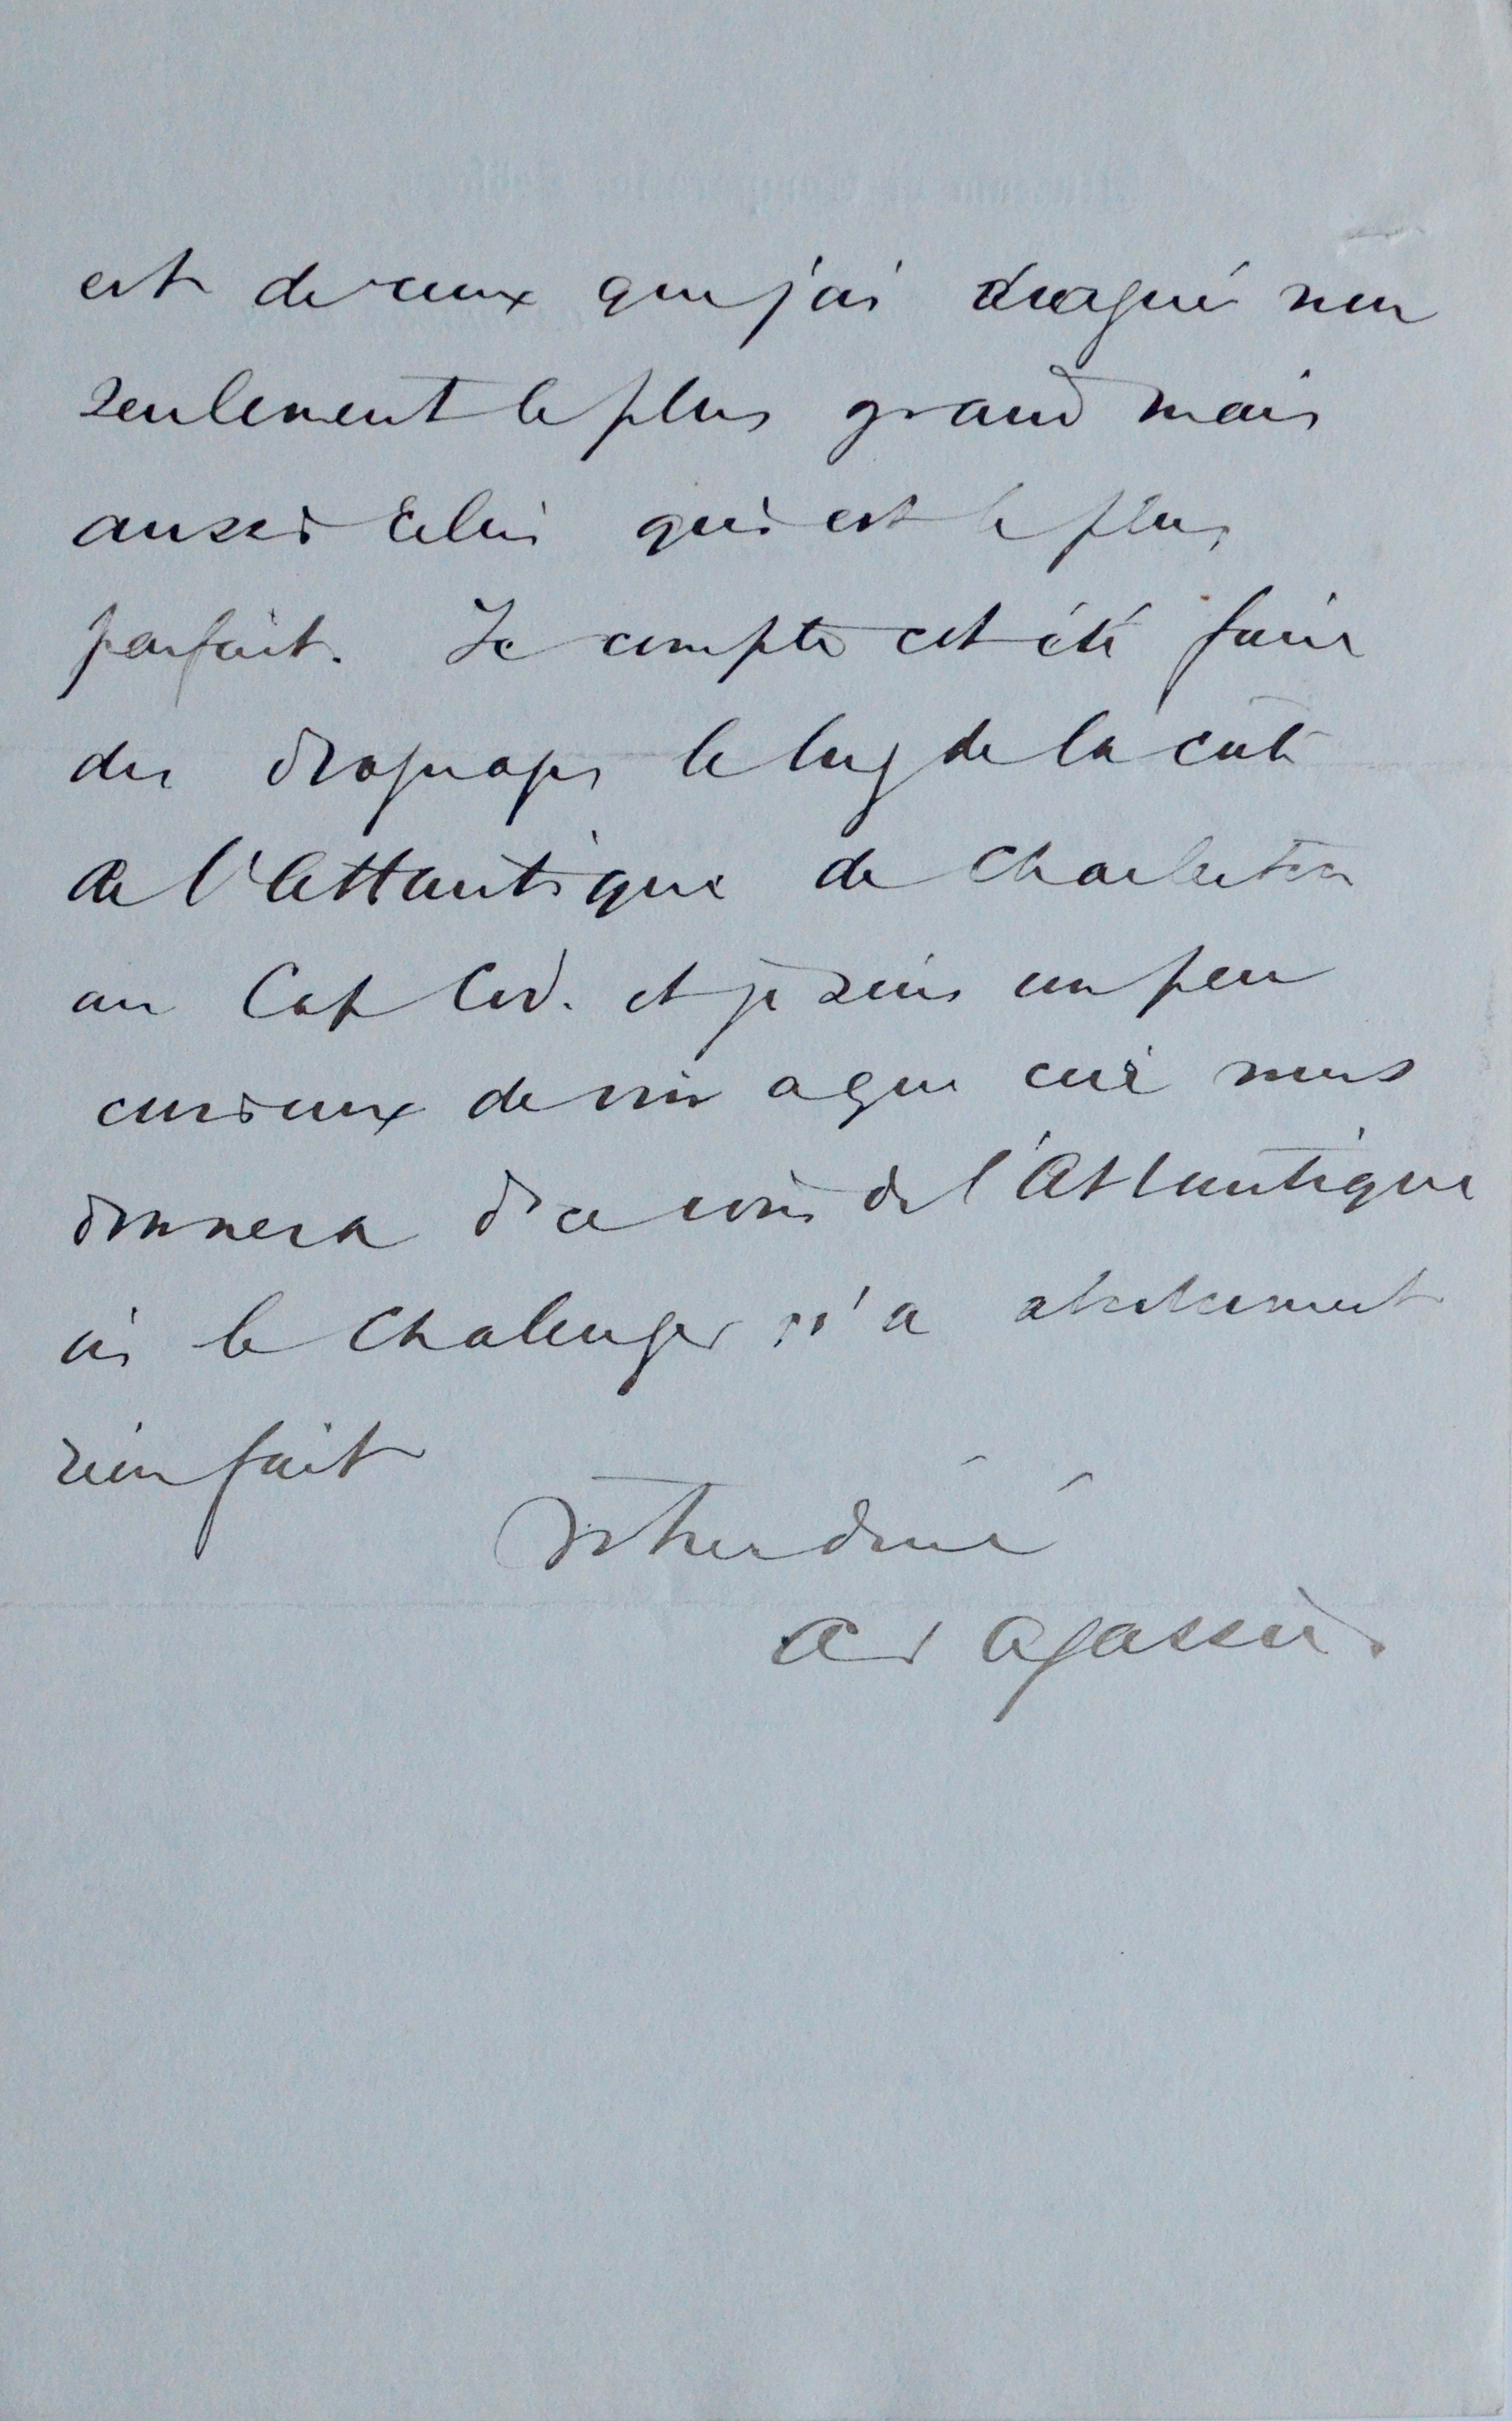 est de ceux que j'ai dragué non
seulement le plus grand mais
aussi celui qui est le plus
parfait. Je compte cet été faire
des dragages le long de la côte
de l'Atlantique de Charleston
au Cap Cod. et je suis un peu
curieux de voir a que ceci nous
donnera d ce coin de l'Atlantique
où le Chalenger n'a absolument
rien fait
Votre devoué
A Agassiz.